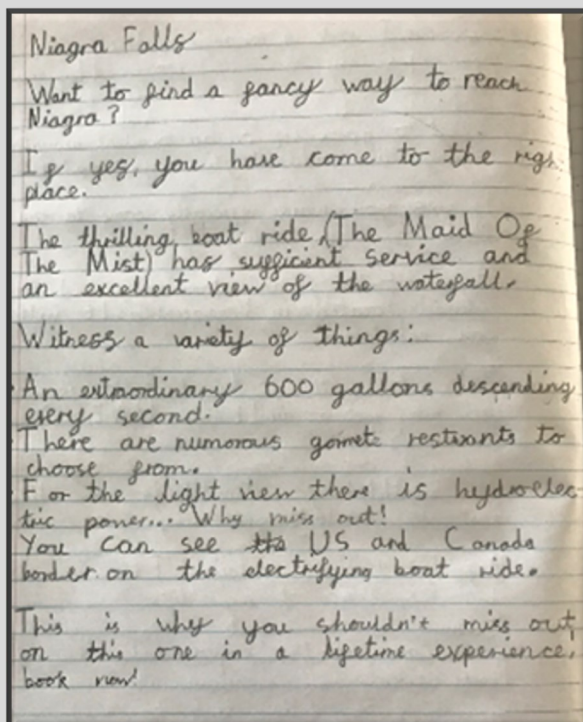 Niagra Falls
Want to find a fancy way to reach
Niagra?
If yes, you have come to the righ
place.
The thrilling boat ride (The Maid Of
The Mist) has sufficient service and
an excellent view of the waterfall.
Witness a variety of things:
An extraordinary 600 gallons descending
every second.
There are numorous gomete restirants to
choose from.
For the light view there is hydroelec-
tric power... Why miss out!
You can see the US and Canada
border on the electrifying boat ride.
This is why you shouldn't miss out
on this one in a lifetime experience,
book now!